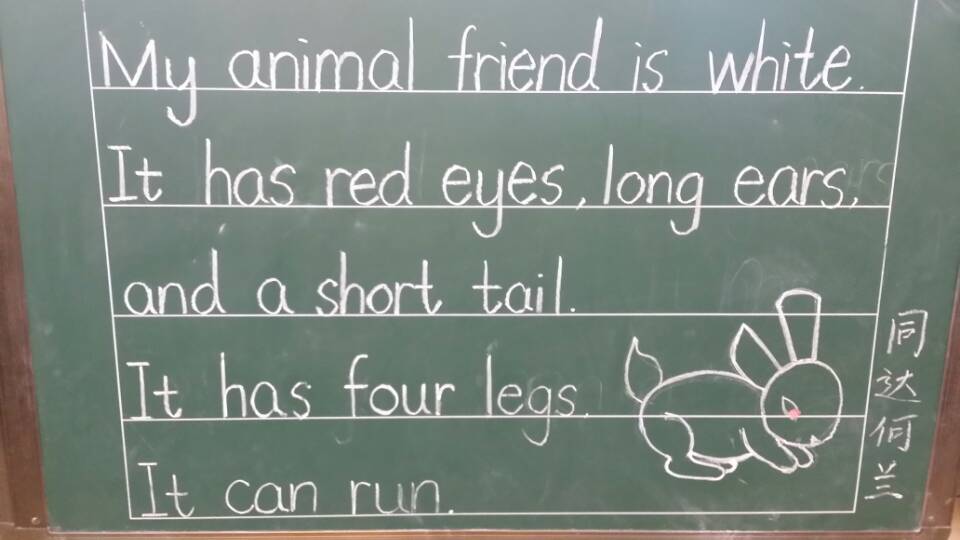 My animal friend is white.
It has red eyes, long ears,
and a short tail.
It has four legs.
It can run.
同达何兰